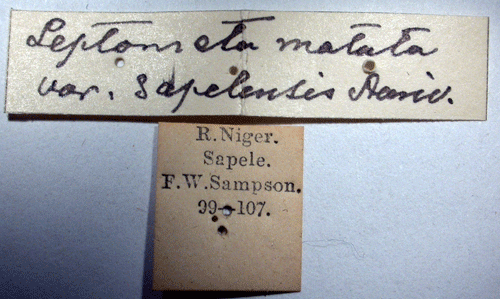 Leptometa matata
var. Sapelensis Auriv.
R. Niger.
Sapele.
F. W. Sampson.
99—107.